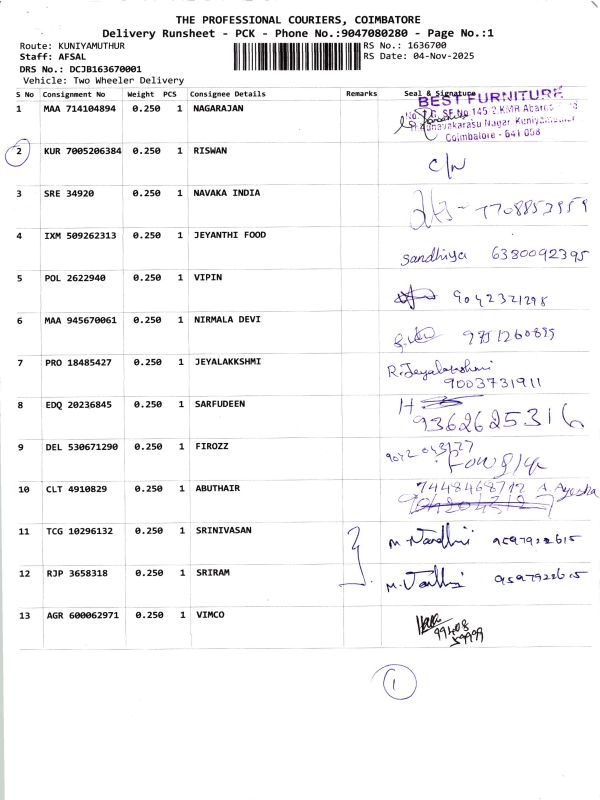 THE PROFESSIONAL COURIERS, COIMBATORE
Delivery Runsheet - PCK - Phone No.:9047080280 - Page No.:1
Route: KUNIYAMUTHUR
RS No.: 1636700
Staff: AFSAL
RS Date: 04-Nov-2025
DRS No.: DCJB163670001
Vehicle: Two Wheeler Delivery
S No Consignment No Weight PCS Consignee Details Remarks Seal & Signature
BEST FURNITURE
1 MAA 714104894 0.250 1 NAGARAJAN
Nagar, Kuniyamuthur
Coimbatore - 641 008
2 KUR 7005206384 0.250 1 RISWAN
C/N
3 SRE 34920 0.250 1 NAVAKA INDIA
7708853959
4 IXM 509262313 0.250 1 JEYANTHI FOOD
Sandhiya 6380092395
5 POL 2622940 0.250 1 VIPIN
9042321298
6 MAA 945670061 0.250 1 NIRMALA DEVI
9751260899
7 PRO 18485427 0.250 1 JEYALAKKSHMI
R.Jeyalakshmi
9003731911
8 EDQ 20236845 0.250 1 SARFUDEEN
H
9362625316
9 DEL 530671290 0.250 1 FIROZZ
10 CLT 4910829 0.250 1 ABUTHAIR
7448468712 A. Ayesha
11 TCG 10296132 0.250 1 SRINIVASAN
M. Nandhini 9597922615
12 RJP 3658318 0.250 1 SRIRAM
9597922615
13 AGR 600062971 0.250 1 VIMCO
99408
59999
1